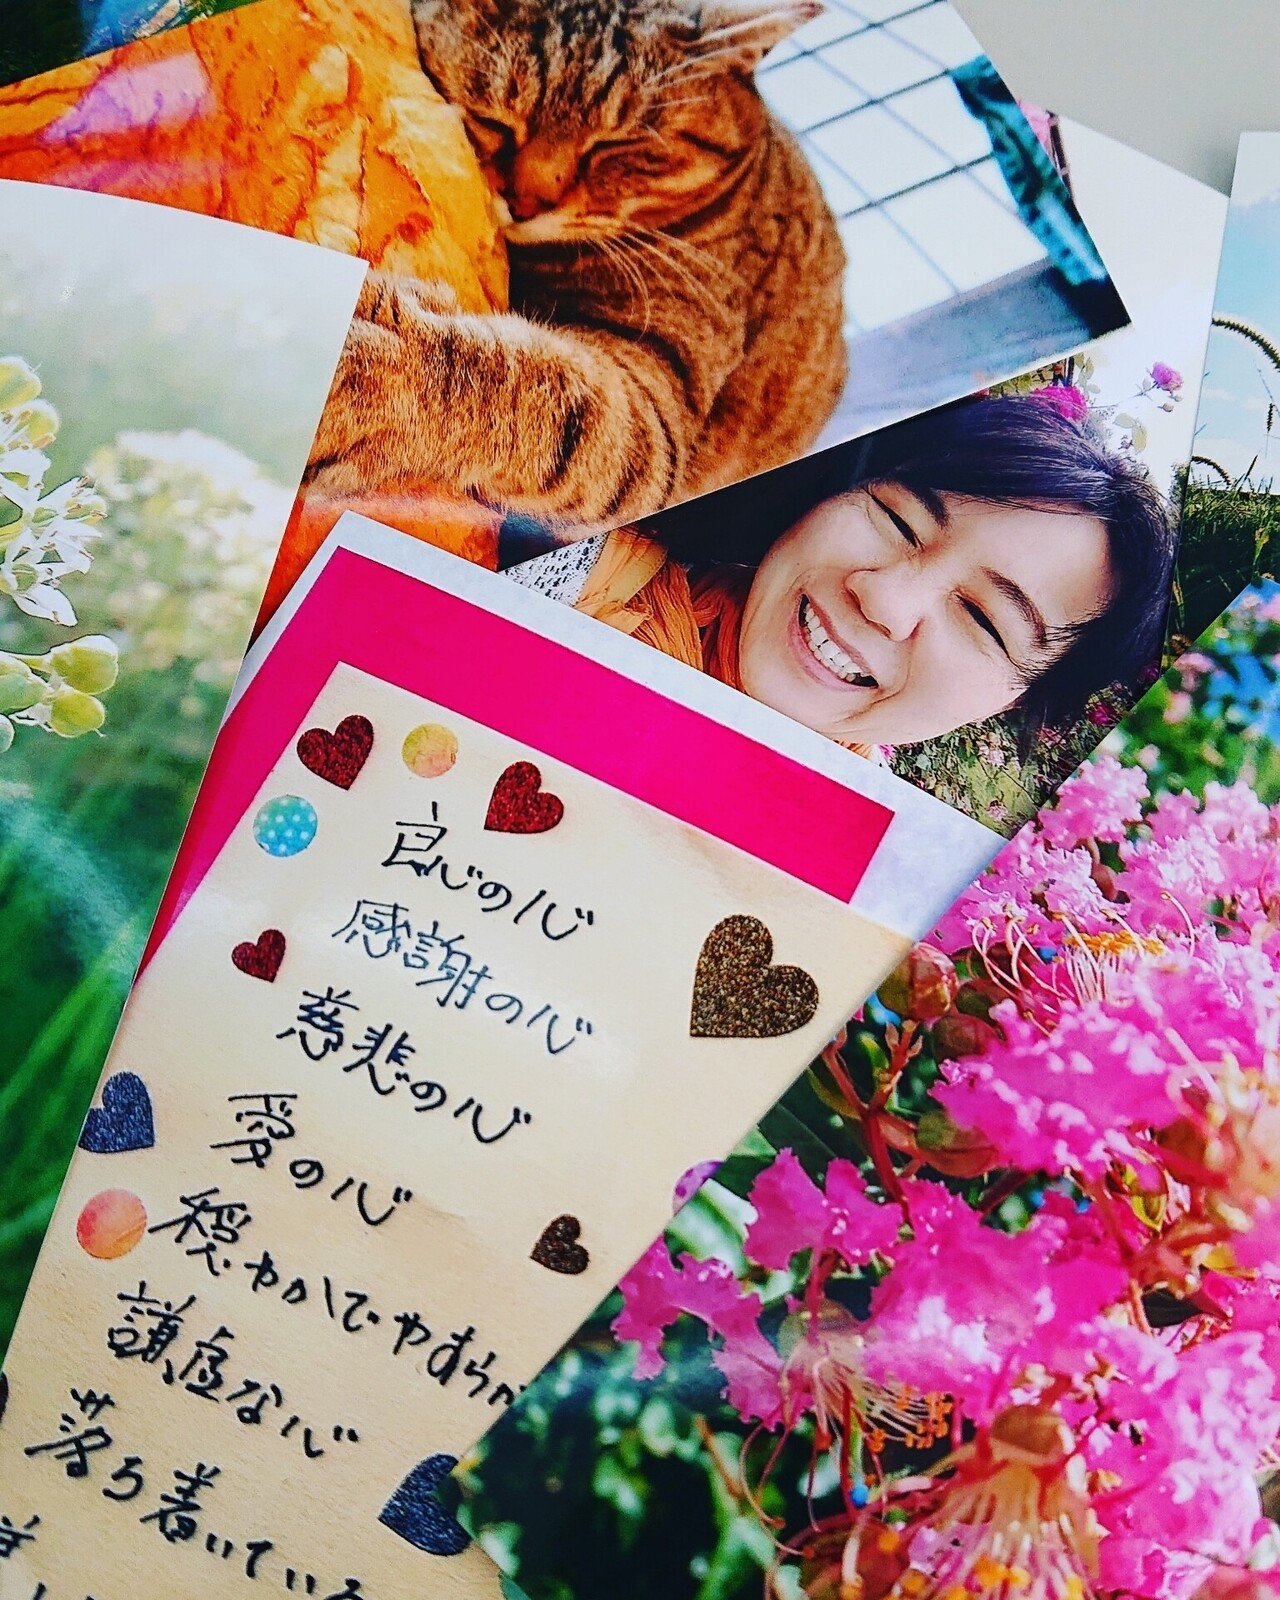 良心の心
感謝の心
慈悲の心
愛の心
穏やかでやわらか
謙虚な心
落ち着いている